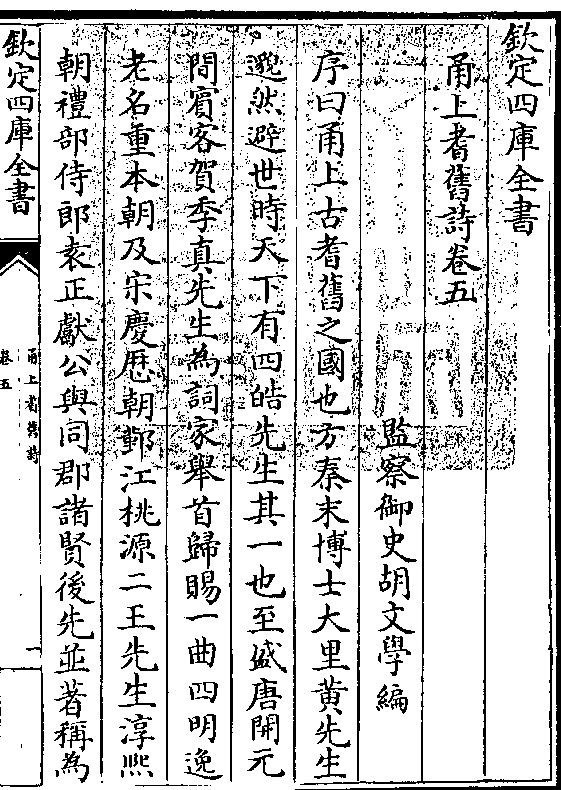 欽定四庫全書
甬上耆舊詩卷五
監察御史胡文學編
序曰甬上古耆舊之國也方秦末博士大里黄先生
邈然避世時天下有四皓先生其一也至盛唐開元
間賔客賀季真先生為詞家舉首歸賜一曲四明逸
老名重本朝及宋慶歴朝鄞江桃源二王先生淳熙
朝禮部侍郎袁正獻公與同郡諸賢後先並著稱為
欽定四庫全書
甬上耆舊詩
卷五
一